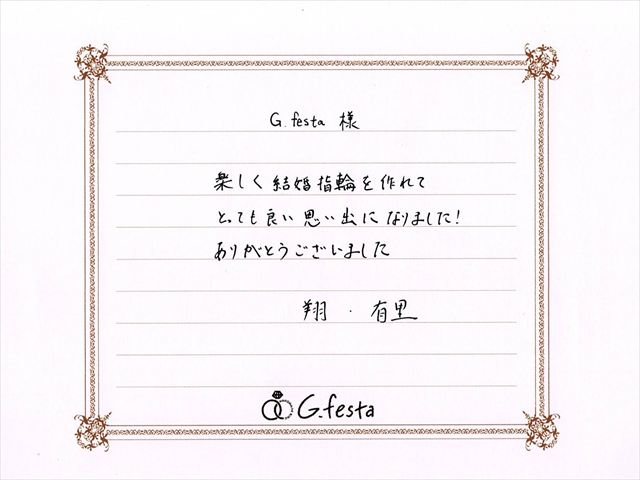 G.festa 様
楽しく結婚指輪を作れて
とっても良い思い出になりました!
ありがとうございました
翔・有里
G.festa